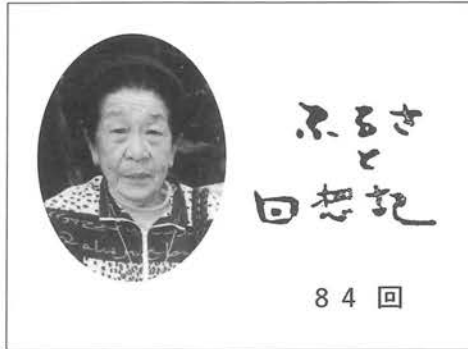 ふるさ
と
回想記
84回